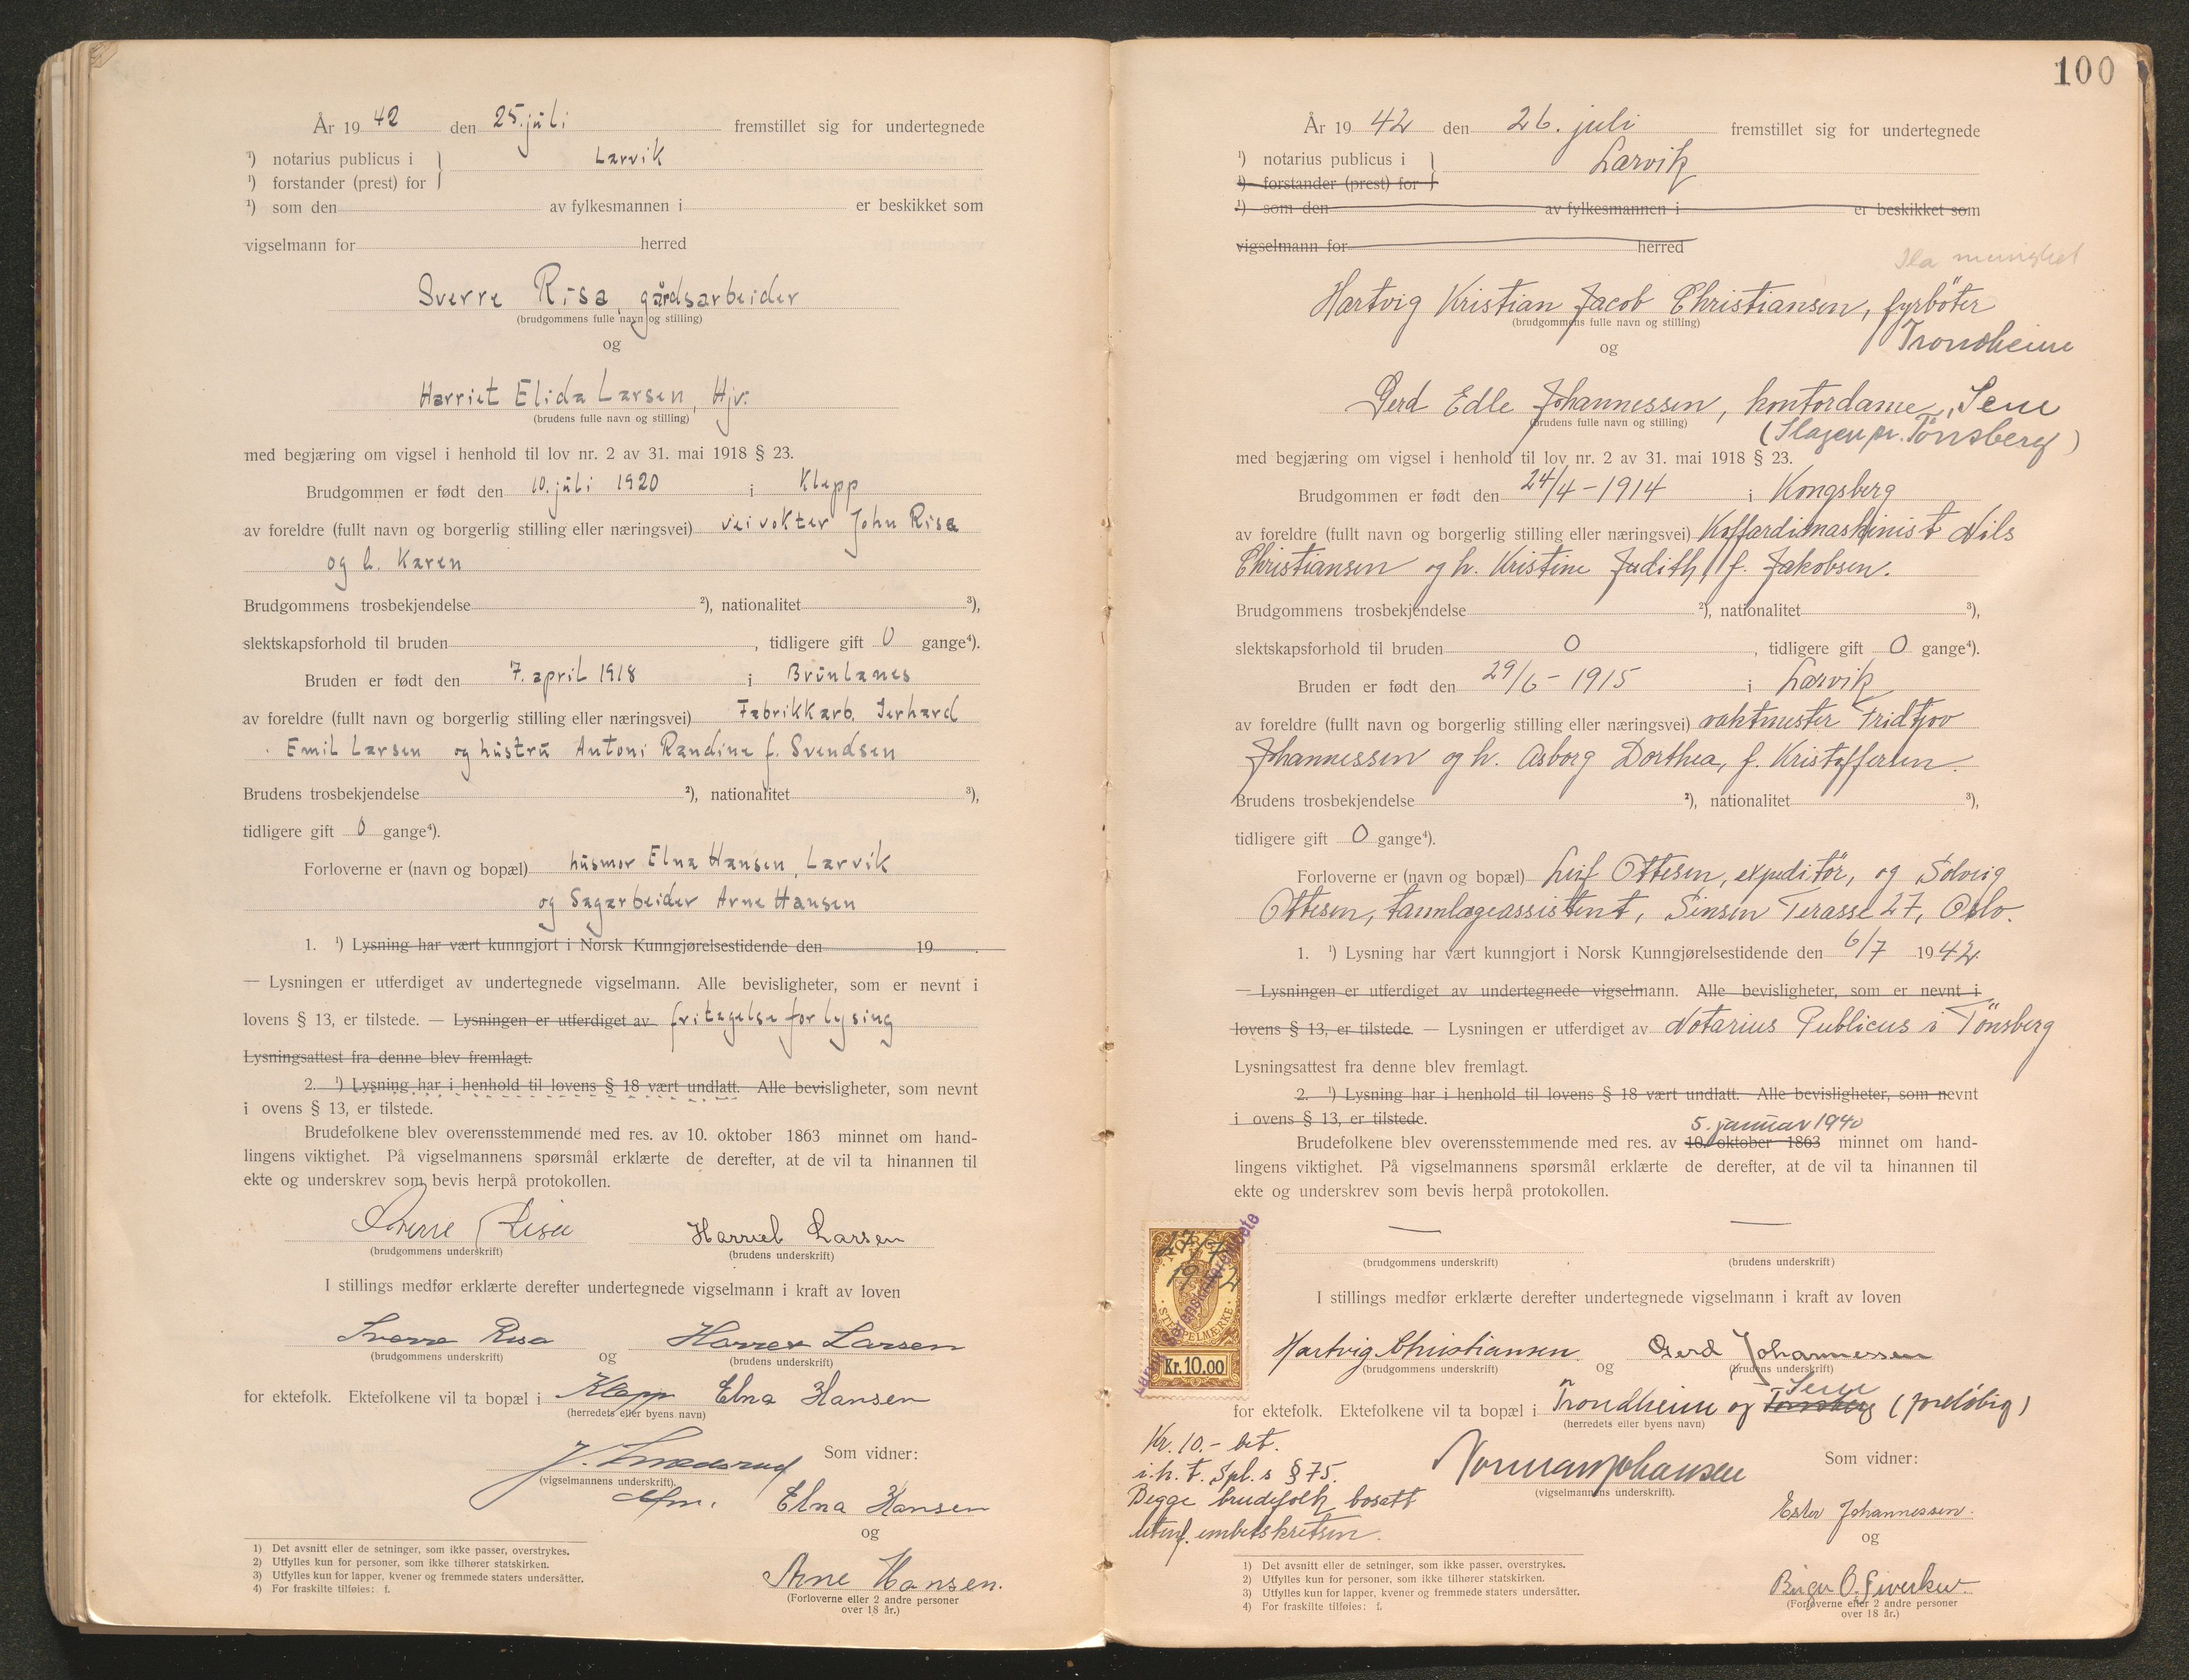 År 1942 den 25. juli fremstillet sig for undertegnede
¹) notarius publicus i } Larvik
¹) forstander (prest) for
¹) som den av fylkesmannen i er beskikket som
vigselmann for herred
Sverre Risa, gårdsarbeider
(brudgommens fulle navn og stilling)
og
Harriet Elida Larsen, Hjv.
(brudens fulle navn og stilling)
med begjæring om vigsel i henhold til lov nr. 2 av 31. mai 1918 § 23.
Brudgommen er født den 10. juli 1920 i Klepp
av foreldre (fullt navn og borgerlig stilling eller næringsvei) veivokter John Risa
og h. Karen
Brudgommens trosbekjendelse ²), nationalitet ³),
slektskapsforhold til bruden , tidligere gift 0 gange⁴).
Bruden er født den 7. april 1918 i Brunlanes
av foreldre (fullt navn og borgerlig stilling eller næringsvei) Fabrikkarb. Gerhard
Emil Larsen og hustru Antoni Randine f. Svendsen
Brudens trosbekjendelse ²), nationalitet ³),
tidligere gift 0 gange⁴).
Forloverne er (navn og bopæl) husmor Elna Hansen, Larvik
og Sagarbeider Arne Hansen
1. ¹) Lysning har vært kunngjort i Norsk Kunngjørelsestidende den 19 .
— Lysningen er utferdiget av undertegnede vigselmann. Alle bevisligheter, som er nevnt i
lovens § 13, er tilstede. — Lysningen er utferdiget av fritagelse for lysing
Lysningsattest fra denne blev fremlagt.
2. ¹) Lysning har i henhold til lovens § 18 vært undlatt. Alle bevisligheter, som nevnt
i ovens § 13, er tilstede.
Brudefolkene blev overensstemmende med res. av 10. oktober 1863 minnet om hand-
lingens viktighet. På vigselmannens spørsmål erklærte de derefter, at de vil ta hinannen til
ekte og underskrev som bevis herpå protokollen.
Sverre Risa Harriet Larsen
(brudgommens underskrift) (brudens underskrift)
I stillings medfør erklærte derefter undertegnede vigselmann i kraft av loven
Sverre Risa og Harriet Larsen
(brudgommens underskrift) (brudens underskrift)
for ektefolk. Ektefolkene vil ta bopæl i Klepp Elna Hansen
(herredets eller byens navn)
Som vidner:
(vigselmannens underskrift).
Elna Hansen
og
Arne Hansen.
(Forloverne eller 2 andre personer
over 18 år.)
1) Det avsnitt eller de setninger, som ikke passer, overstrykes.
2) Utfylles kun for personer, som ikke tilhører statskirken.
3) Utfylles kun for lapper, kvener og fremmede staters undersåtter.
4) For fraskilte tilføies: f.
100
År 1942 den 26. juli fremstillet sig for undertegnede
¹) notarius publicus i } Larvik
¹) forstander (prest) for
¹) som den av fylkesmannen i er beskikket som
vigselmann for herred
Ila menighet
Hartvig Kristian Jacob Christiansen, fyrbøter
(brudgommens fulle navn og stilling)
Trondheim
og
Gerd Edle Johannessen, kontordame, Sem
(brudens fulle navn og stilling)
(Slagen pr. Tønsberg)
med begjæring om vigsel i henhold til lov nr. 2 av 31. mai 1918 § 23.
Brudgommen er født den 24/4-1914 i Kongsberg
av foreldre (fullt navn og borgerlig stilling eller næringsvei) Koffardimaskinist Nils
Christiansen og h. Kristine Judith, f. Jakobsen.
Brudgommens trosbekjendelse ²), nationalitet ³),
slektskapsforhold til bruden 0 , tidligere gift 0 gange⁴).
Bruden er født den 29/6-1915 i Larvik
av foreldre (fullt navn og borgerlig stilling eller næringsvei) vaktmester Fridtjov
Johannessen og h. Asborg Dorthea, f. Kristoffersen.
Brudens trosbekjendelse ²), nationalitet ³),
tidligere gift 0 gange⁴).
Forloverne er (navn og bopæl) Leif Ottesen, expeditør, og Solveig
Ottesen, tannlægeassistent, Sinsen Terasse 27, Oslo.
1. ¹) Lysning har vært kunngjort i Norsk Kunngjørelsestidende den 6/7 1942
— Lysningen er utferdiget av undertegnede vigselmann. Alle bevisligheter, som er nevnt i
lovens § 13, er tilstede. — Lysningen er utferdiget av Notarius Publicus i Tønsberg
Lysningsattest fra denne blev fremlagt.
2. ¹) Lysning har i henhold til lovens § 18 vært undlatt. Alle bevisligheter, som nevnt
i ovens § 13, er tilstede.
5. januar 1940
Brudefolkene blev overensstemmende med res. av 10. oktober 1863 minnet om hand-
lingens viktighet. På vigselmannens spørsmål erklærte de derefter, at de vil ta hinannen til
ekte og underskrev som bevis herpå protokollen.
— —
(brudgommens underskrift) (brudens underskrift)
NORGE
STEMPELMÆRKE
Kr. 10.00
27/7 1942
I stillings medfør erklærte derefter undertegnede vigselmann i kraft av loven
Hartvig Christiansen og Gerd Johannessen
(brudgommens underskrift) (brudens underskrift)
Sem
for ektefolk. Ektefolkene vil ta bopæl i Trondheim og Tønsberg (foreløbig)
(herredets eller byens navn)
Kr. 10.- bet.
i.h.t. Spl.s § 75.
Begge brudefolk bosatt
utenf. embetskretsen.
Norman Johansen
(vigselmannens underskrift).
Som vidner:
Ester Johannessen.
og
Birger O.
(Forloverne eller 2 andre personer
over 18 år.)
1) Det avsnitt eller de setninger, som ikke passer, overstrykes.
2) Utfylles kun for personer, som ikke tilhører statskirken.
3) Utfylles kun for lapper, kvener og fremmede staters undersåtter.
4) For fraskilte tilføies: f.